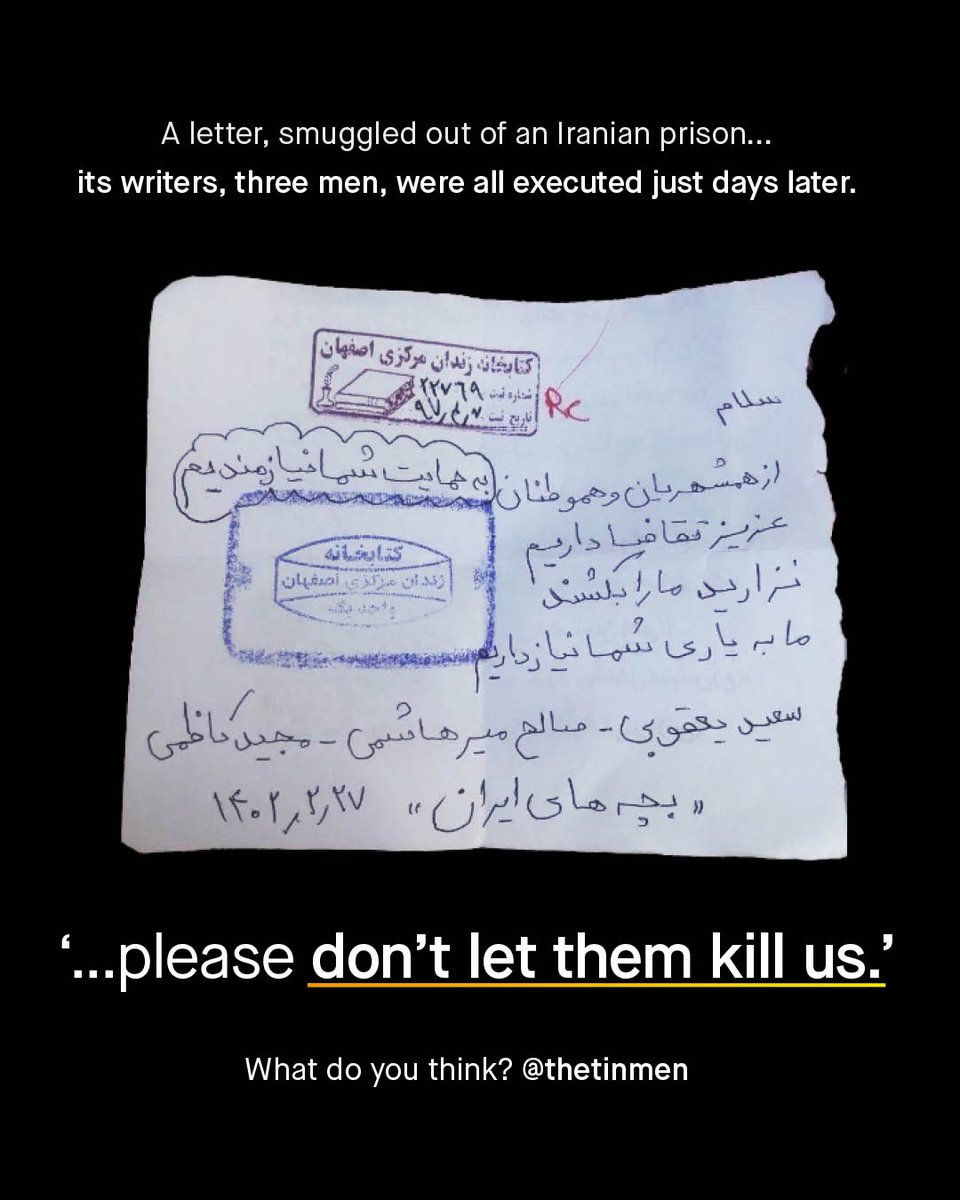 A letter, smuggled out of an Iranian prison...
its writers, three men, were all executed just days later.
کتابخانه زندان مرکزی اصفهان
شماره ثبت ۲۲۷۶۹
تاریخ ثبت ۹۷٫۴٫۷
Rc
سلام
از همشهریان و هموطنان به حمایت شما نیازمندیم
عزیز تقاضا داریم
نزارید ما را بکشند
ما به یاری شما نیاز داریم
کتابخانه
زندان مرکزی اصفهان
واحد یک
سعید یعقوبی - صالح میرهاشمی - مجید کاظمی
«بچه های ایران» ۱۴۰۲٫۲٫۲۷
‘...please don’t let them kill us.’
What do you think? @thetinmen